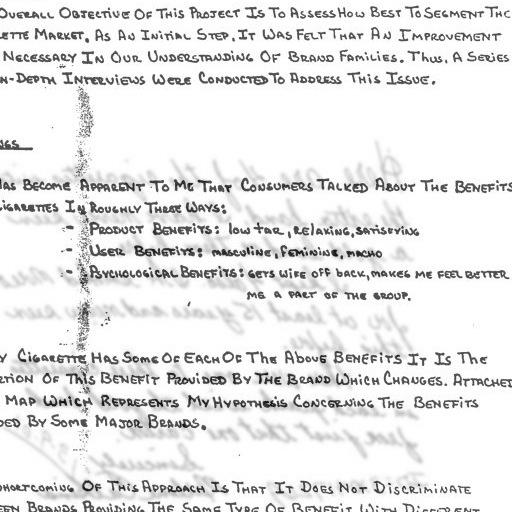 Overall Objective Of This Project Is To Assess How Best To Segment The
ette Market. As An Initial Step, It Was Felt That An Improvement
Necessary In Our Understanding Of Brand Families. Thus, A Series
n-Depth Interviews Were Conducted To Address This Issue.
ngs
Has Become Apparent To Me That Consumers Talked About The Benefits
Cigarettes In Roughly Three Ways:
- Product Benefits: low tar, relaxing, satisfying
- User Benefits: masculine, feminine, macho
- Psychological Benefits: gets wife off back, makes me feel better
me a part of the group.
y Cigarette Has Some Of Each Of The Above Benefits It Is The
rtion Of This Benefit Provided By The Brand Which Changes. Attached
Map Which Represents My Hypothesis Concerning The Benefits
ded By Some Major Brands.
hortcoming Of This Approach Is That It Does Not Discriminate
een Brands Providing The Same Type Of Benefit With Different